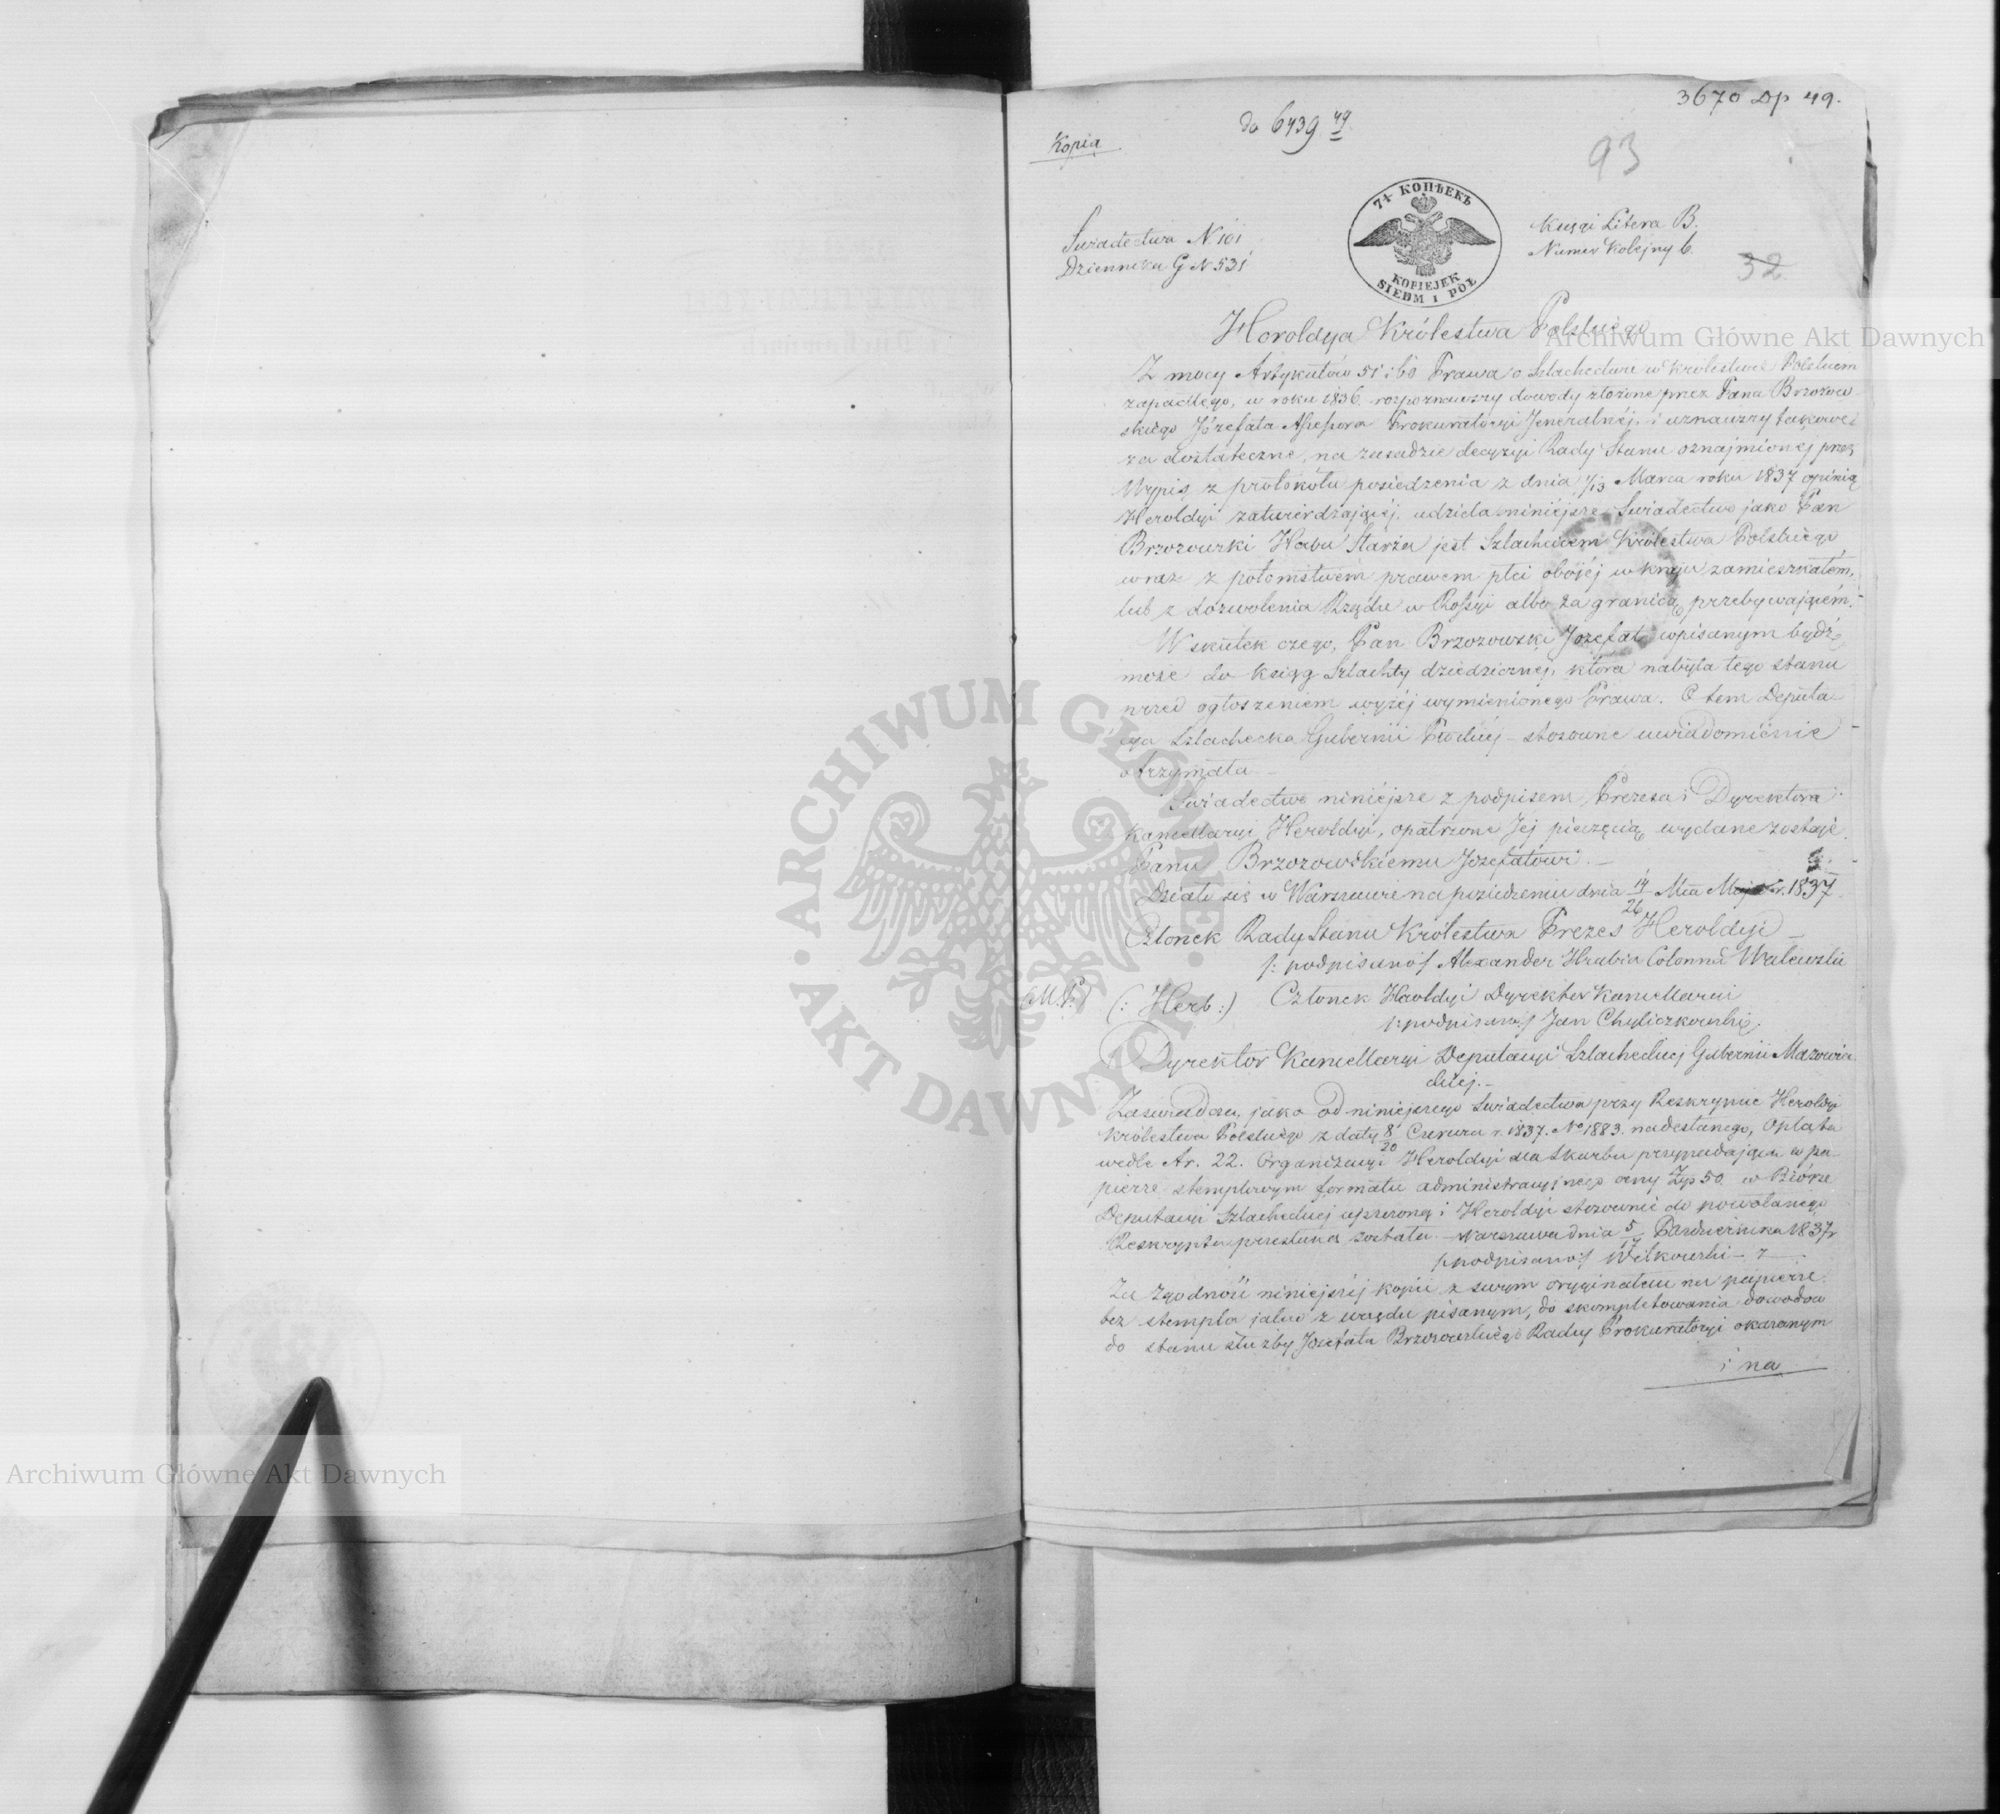 3670 Dp 49.
do 6439 49
Kopia
93
7½ КОПѢЕКЪ
KOPIEJEK
SIEDM I PÓŁ
Swiadectwa N 101
Dziennika G N 531
Księgi Litera B.
Numer Kolejny 6.
32
Heroldya Królestwa Polskiego
Z mocy Artykułów 51 i 60 Prawa o Szlachectwie w Królestwie Polskiem
zapadłego, w roku 1836. rozpoznawszy dowody złożone przez Pana Brzozow-
skiego Józefata Assessora Prokuratoryi Jeneralnéj, i uznawszy takowe
za dostateczne, na zasadzie decyzyi Rady Stanu oznajmionej przez
Wypis z protokółu posiedzenia z dnia 1/13 Marca roku 1837 opinią
Heroldyi zatwierdzającéj, udziela niniéjsze Swiadectwo jako Pan
Brzozowski Herbu Starża jest Szlachcicem Królestwa Polskiego
wraz z potomstwem prawem płci obojéj w kraju zamieszkałém,
lub z dozwolenia Rządu w Rossyi albo za granicą przebywającém.
W skutek czego, Pan Brzozowski Jozefat wpisanym bydź
może do Ksiąg Szlachty dziedzicznej, która nabyła tego stanu
przed ogłoszeniem wyżéj wymienionego Prawa. O tem Deputa-
cya Szlachecka Gubernii stósowne uwiadomienie
otrzymała
Swiadectwo niniéjsze z podpisem Prezesa i Dyrektora
Kancellaryi Heroldyi, opatrzone Jej pieczęcią wydane zostaje
Panu Brzozowskiemu Jozefatowi. —
Działo się w Warszawie na posiedzeniu dnia 14/26 Mca Maja r. 1837.
Członek Rady Stanu Królestwa Prezes Heroldyi
/: podpisano :/ Alexander Hrabia Colonna Walewski
(M.P.) (: Herb :) Członek Heroldyi Dyrektor Kancellaryi
/: podpisano :/ Jan Chyliczkowski
Dyrektor Kancellaryi Deputacyi Szlacheckiej Gubernii Mazowie-
ckiéj. —
Zaswiadcza, jako od niniejszego Swiadectwa przy Reskrypcie Heroldyi
Królestwa Polskiego z daty 8/20 Czerwca r. 1837. No 1883. nadesłanego, Opłata
wedle Ar. 22. Organizacyi Heroldyi dla Skarbu przypadająca w pa-
pierze stemplowym formatu administracyjnego ceny Złp 50. w Biórze
Deputacyi Szlacheckiej i Heroldyi stosownie do powołanego
Reskryptu przesłaną została — Warszawa dnia 5/17 Pazdziernika 1837 r
/: podpisano :/ Wilkowski —
Za zgodność niniejszéj kopii z swym oryginałem na papierze
bez stempla jako z urzędu pisanym, do skompletowania dowodow
do stanu służby Jozefata Brzozowskiego Radcy Prokuratoryi okazanym
i na
Archiwum Główne Akt Dawnych
ARCHIWUM GŁÓWNE
AKT DAWNYCH
Archiwum Główne Akt Dawnych